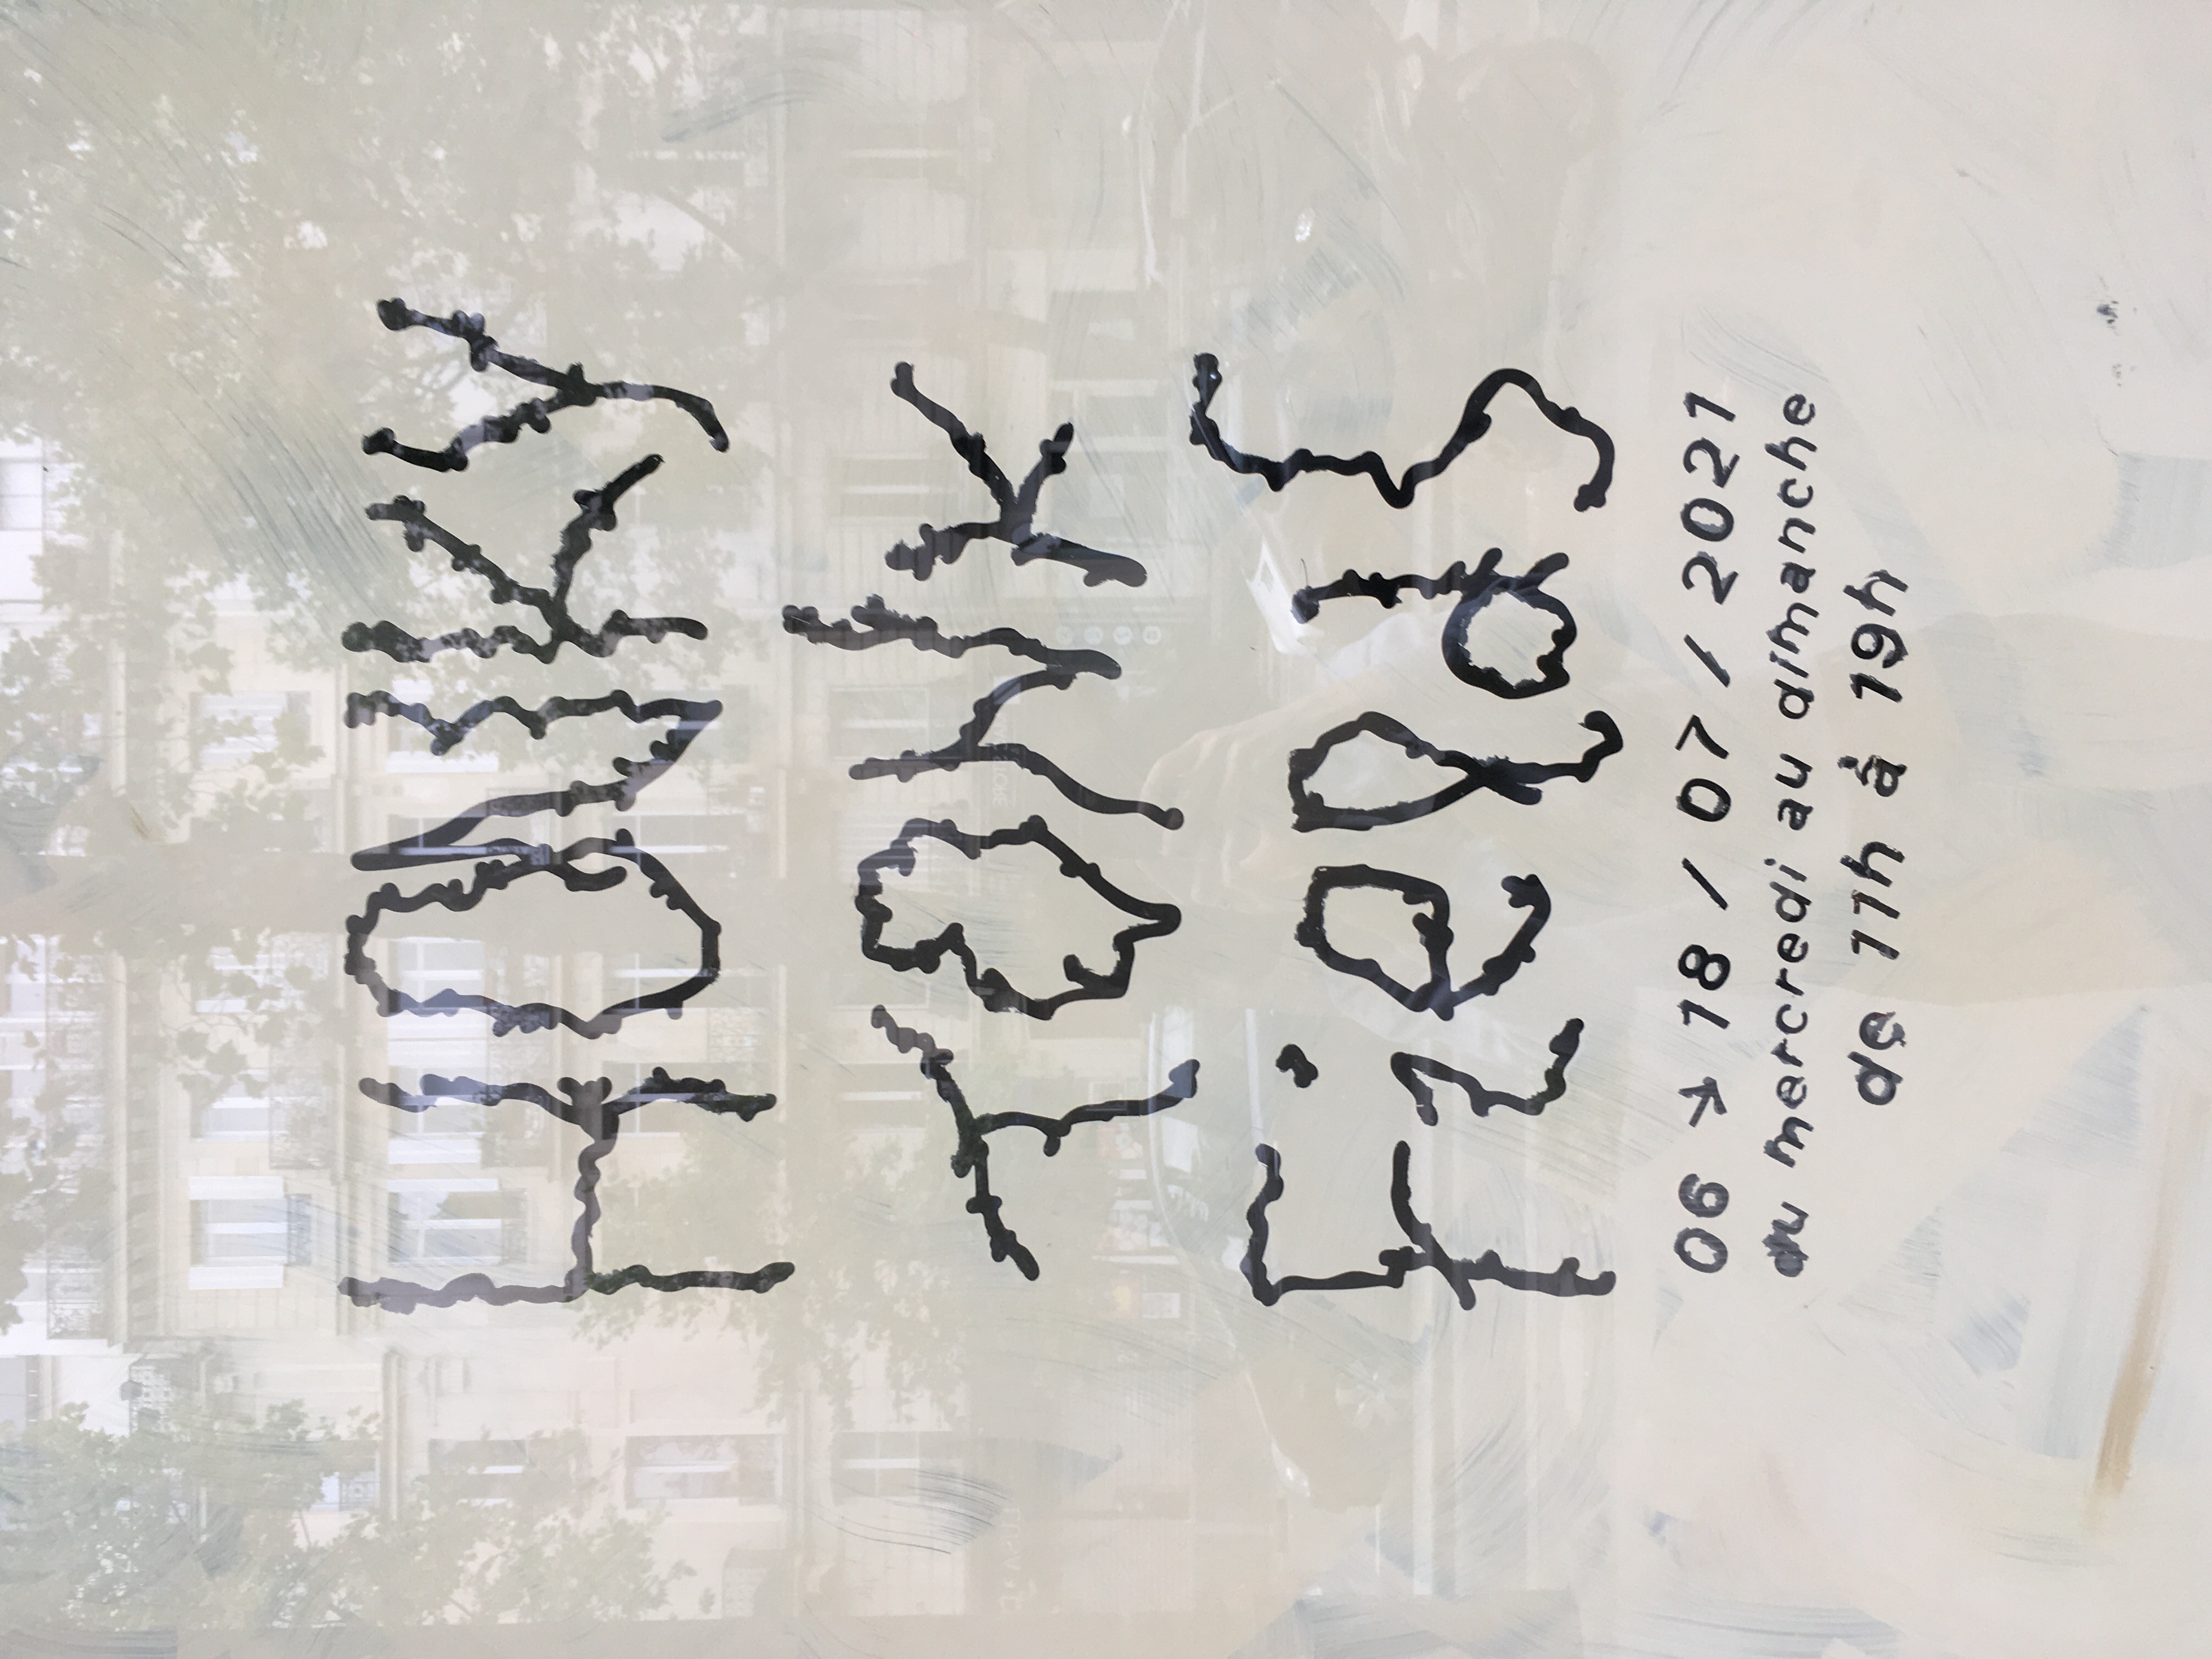 HONKY
TONK
FieldS
06 → 18 / 07 / 2021
du mercredi au dimanche
de 11h à 19h